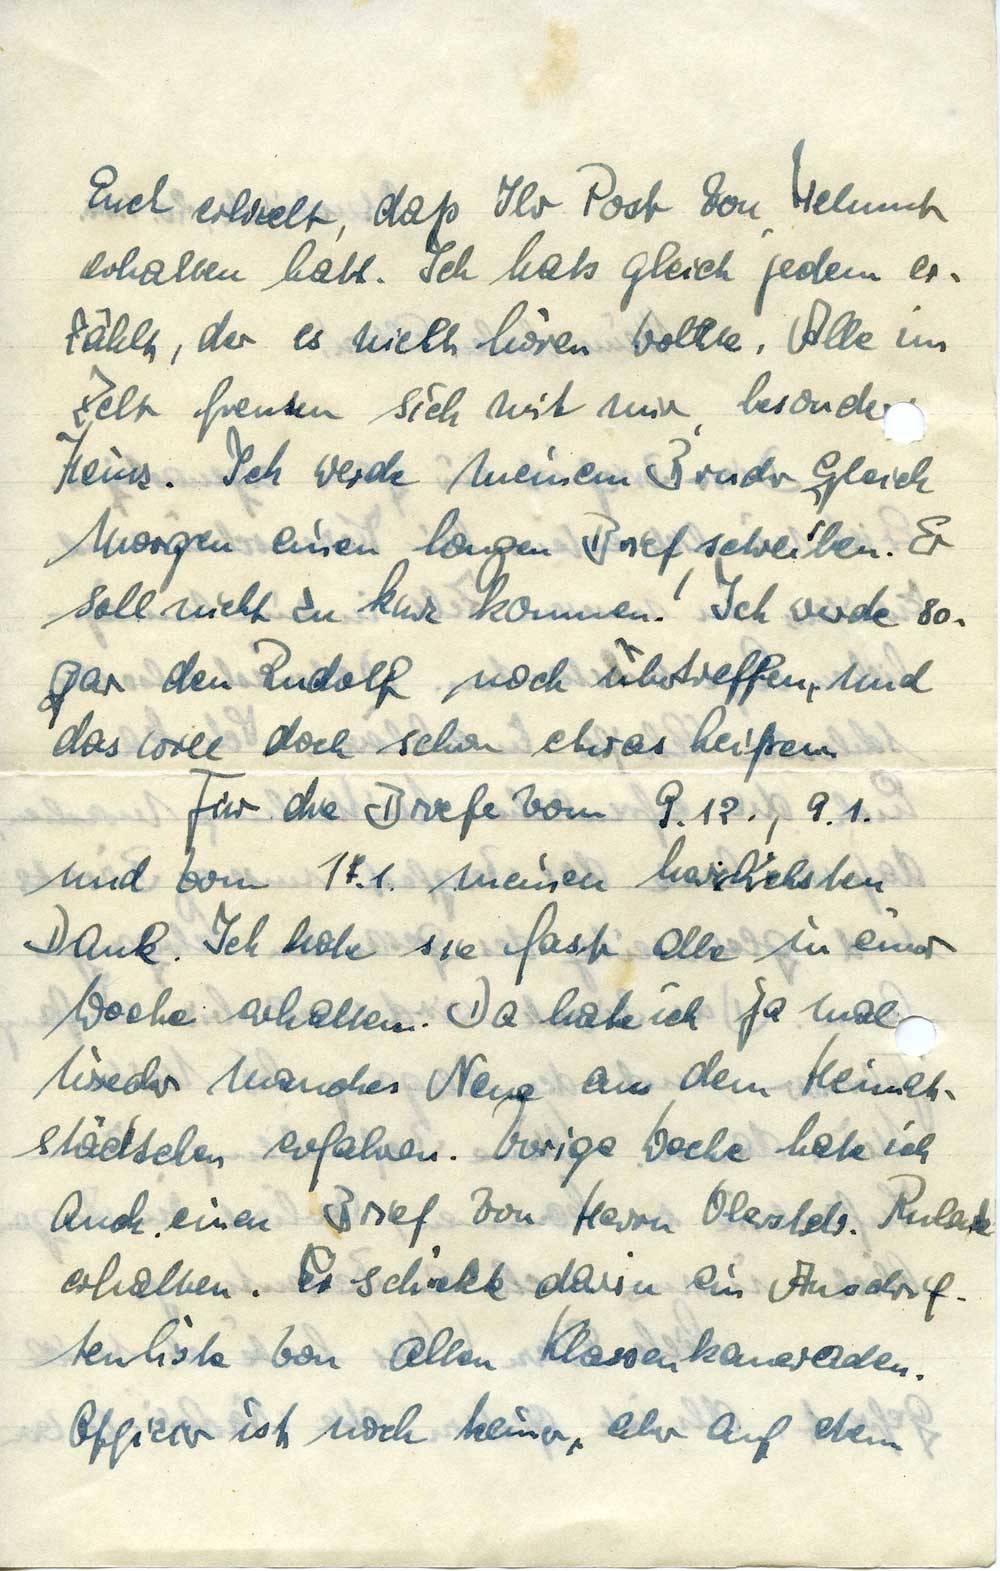 Euch erhielt, daß Ihr Post von Helmut
erhalten habt. Ich habs gleich jedem er-
zählt, der es nicht hören wollte. Alle im
Zelt freuten sich mit mir, besonders
Heinz. Ich werde meinem Bruder gleich
morgen einen langen Brief schreiben. Er
soll nicht zu kurz kommen! Ich werde so-
gar den Rudolf noch übertreffen, und
das will doch schon etwas heißen.
Für die Briefe vom 9.12., 9.1.
und vom 17.1. meinen herzlichsten
Dank. Ich habe sie fast alle in einer
Woche erhalten. Da habe ich ja mal
wieder manches Neue aus dem Heimat-
städtchen erfahren. Vorige Woche habe ich
auch einen Brief von Herrn
erhalten. Er schickt darin ein Anschrif-
tenliste von allen Klassenkameraden.
Offizier ist noch keiner, aber auf dem